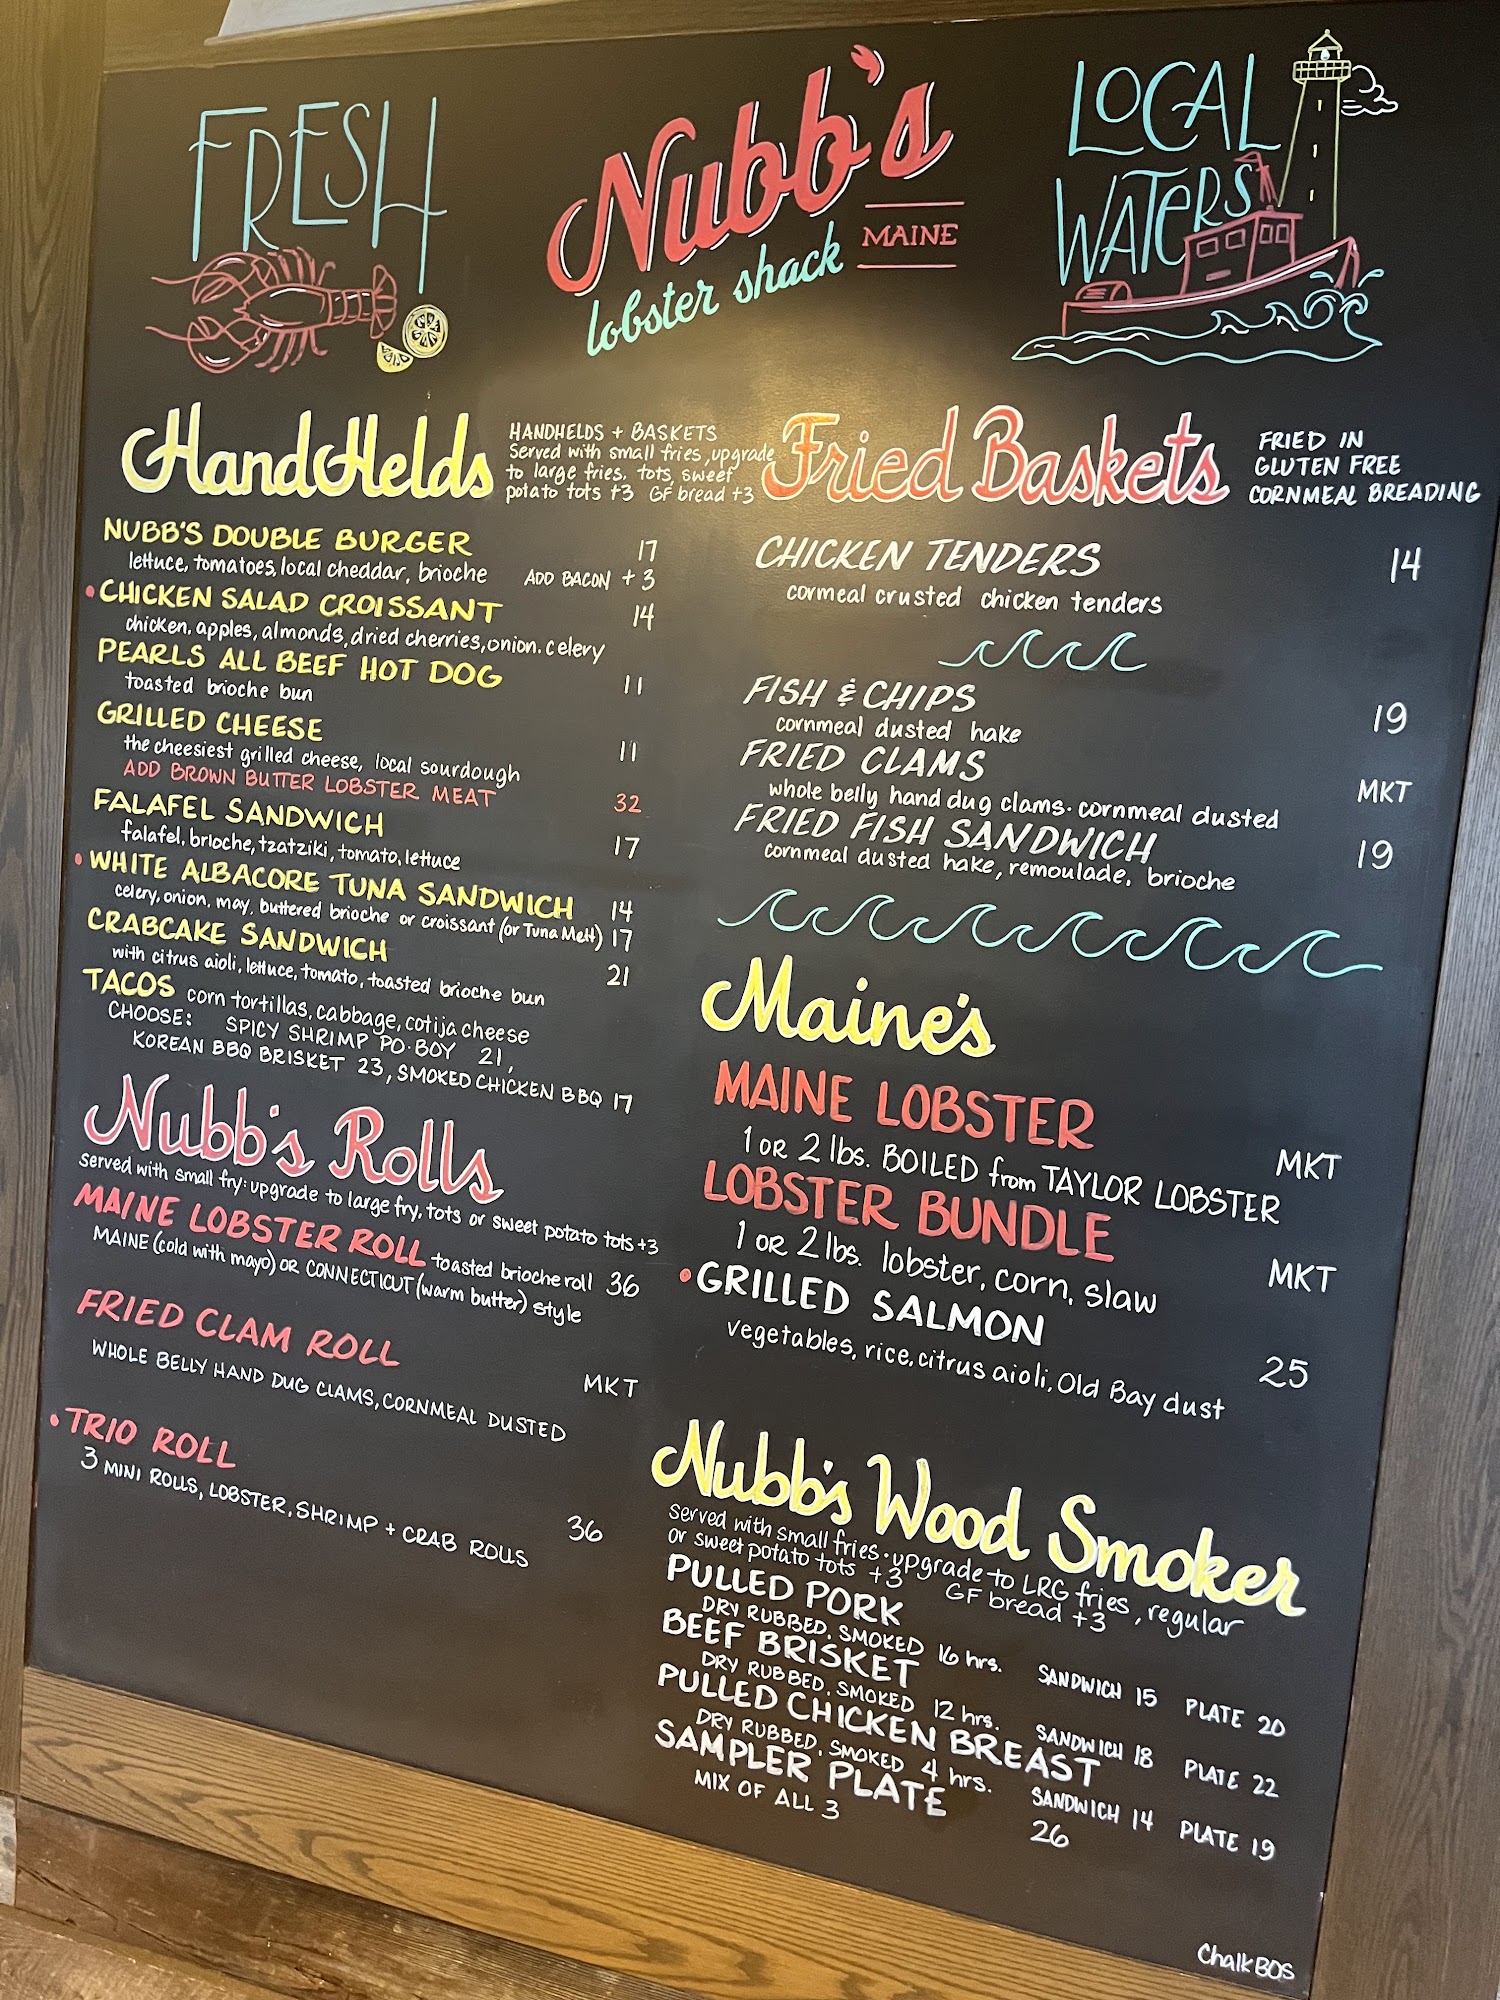 FRESH
Nubb's
lobster shack
MAINE
LOCAL
WATERS
HandHelds
HANDHELDS + BASKETS
Served with small fries, upgrade
to large fries, tots, sweet
potato tots +3 GF bread +3
NUBB'S DOUBLE BURGER 17
lettuce, tomatoes, local cheddar, brioche ADD BACON +3
• CHICKEN SALAD CROISSANT 14
chicken, apples, almonds, dried cherries, onion, celery
PEARLS ALL BEEF HOT DOG 11
toasted brioche bun
GRILLED CHEESE 11
the cheesiest grilled cheese, local sourdough
ADD BROWN BUTTER LOBSTER MEAT 32
FALAFEL SANDWICH 17
falafel, brioche, tzatziki, tomato, lettuce
• WHITE ALBACORE TUNA SANDWICH 14
celery, onion, may, buttered brioche or croissant (or Tuna Melt) 17
CRABCAKE SANDWICH 21
with citrus aioli, lettuce, tomato, toasted brioche bun
TACOS corn tortillas, cabbage, cotija cheese
CHOOSE: SPICY SHRIMP PO·BOY 21,
KOREAN BBQ BRISKET 23, SMOKED CHICKEN BBQ 17
Nubb's Rolls
served with small fry: upgrade to large fry, tots or sweet potato tots +3
MAINE LOBSTER ROLL toasted brioche roll 36
MAINE (cold with mayo) OR CONNECTICUT (warm butter) style
FRIED CLAM ROLL MKT
WHOLE BELLY HAND DUG CLAMS, CORNMEAL DUSTED
• TRIO ROLL 36
3 MINI ROLLS, LOBSTER, SHRIMP + CRAB ROLLS
Fried Baskets
FRIED IN
GLUTEN FREE
CORNMEAL BREADING
CHICKEN TENDERS 14
cormeal crusted chicken tenders
FISH & CHIPS 19
cornmeal dusted hake
FRIED CLAMS MKT
whole belly hand dug clams. cornmeal dusted
FRIED FISH SANDWICH 19
cornmeal dusted hake, remoulade, brioche
Maine's
MAINE LOBSTER MKT
1 OR 2 lbs. BOILED from TAYLOR LOBSTER
LOBSTER BUNDLE MKT
1 OR 2 lbs. lobster, corn, slaw
• GRILLED SALMON 25
vegetables, rice, citrus aioli, Old Bay dust
Nubb's Wood Smoker
served with small fries · upgrade to LRG fries, regular
or sweet potato tots +3 GF bread +3
PULLED PORK
DRY RUBBED, SMOKED 16 hrs. SANDWICH 15 PLATE 20
BEEF BRISKET
DRY RUBBED, SMOKED 12 hrs. SANDWICH 18 PLATE 22
PULLED CHICKEN BREAST
DRY RUBBED, SMOKED 4 hrs. SANDWICH 14 PLATE 19
SAMPLER PLATE 26
MIX OF ALL 3
ChalkBOS